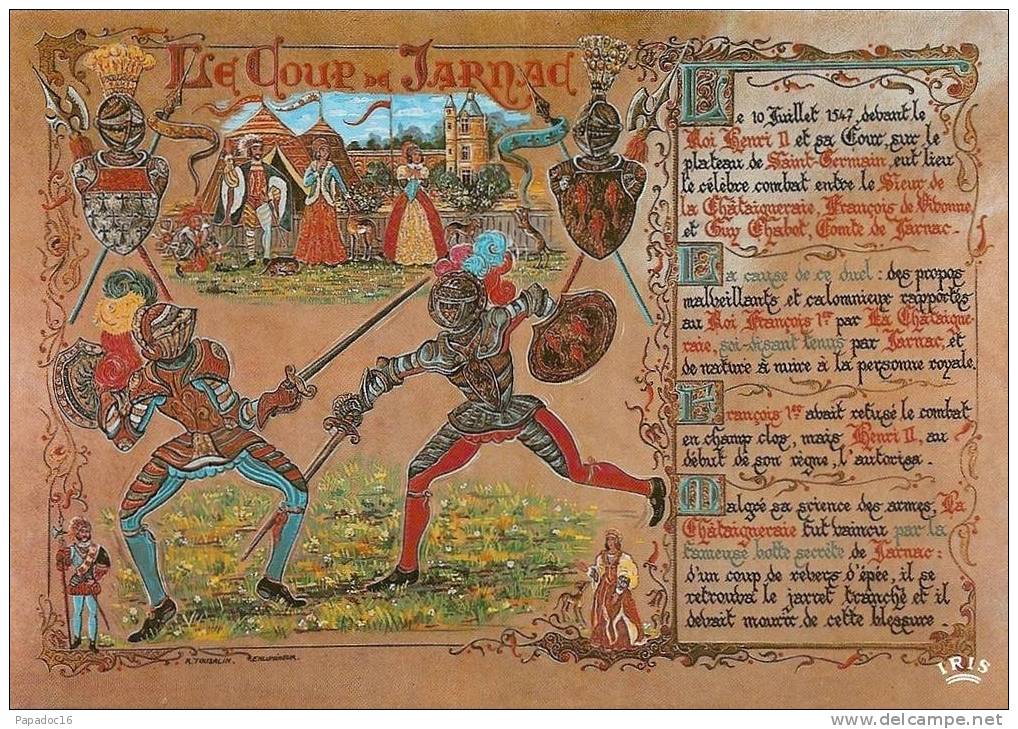 Le Coup de Jarnac
Le 10 Juillet 1547, devant le
Roi Henri II et sa Cour, sur le
plateau de Saint-Germain, eut lieu
le célèbre combat entre le Sieur de
la Châtaigneraie, François de Vivonne,
et Guy Chabot, Comte de Jarnac.
La cause de ce duel : des propos
malveillants et calomnieux rapportés
au Roi François 1er par La Châtaigne-
raie, soi-disant tenus par Jarnac, et
de nature à nuire à la personne royale.
François 1er avait refusé le combat
en champ clos, mais Henri II, au
début de son règne, l'autorisa.
Malgré sa science des armes, La
Châtaigneraie fut vaincu par la
fameuse botte secrète de Jarnac :
d'un coup de revers d'épée, il se
retrouva le jarret tranché et il
devait mourir de cette blessure.
R. TOUSALIN. ENLUMINEUR.
IRIS
Papadoc16
www.delcampe.net